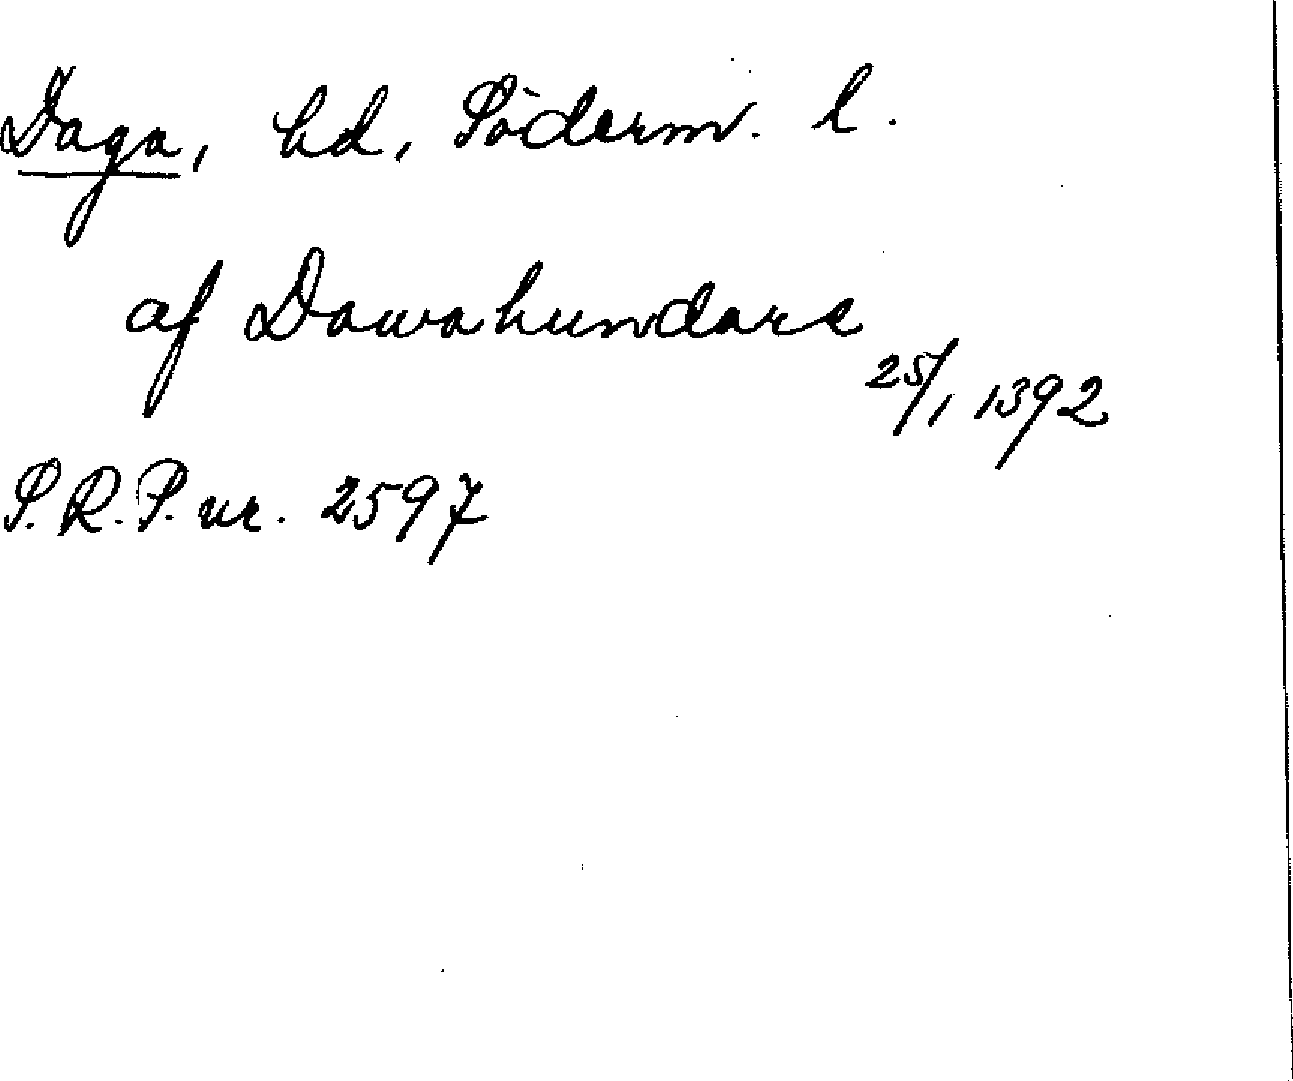 Daga, hd, Söderm. l.
af Dawahundare
25/1 1392
S.R.P. nr. 2597